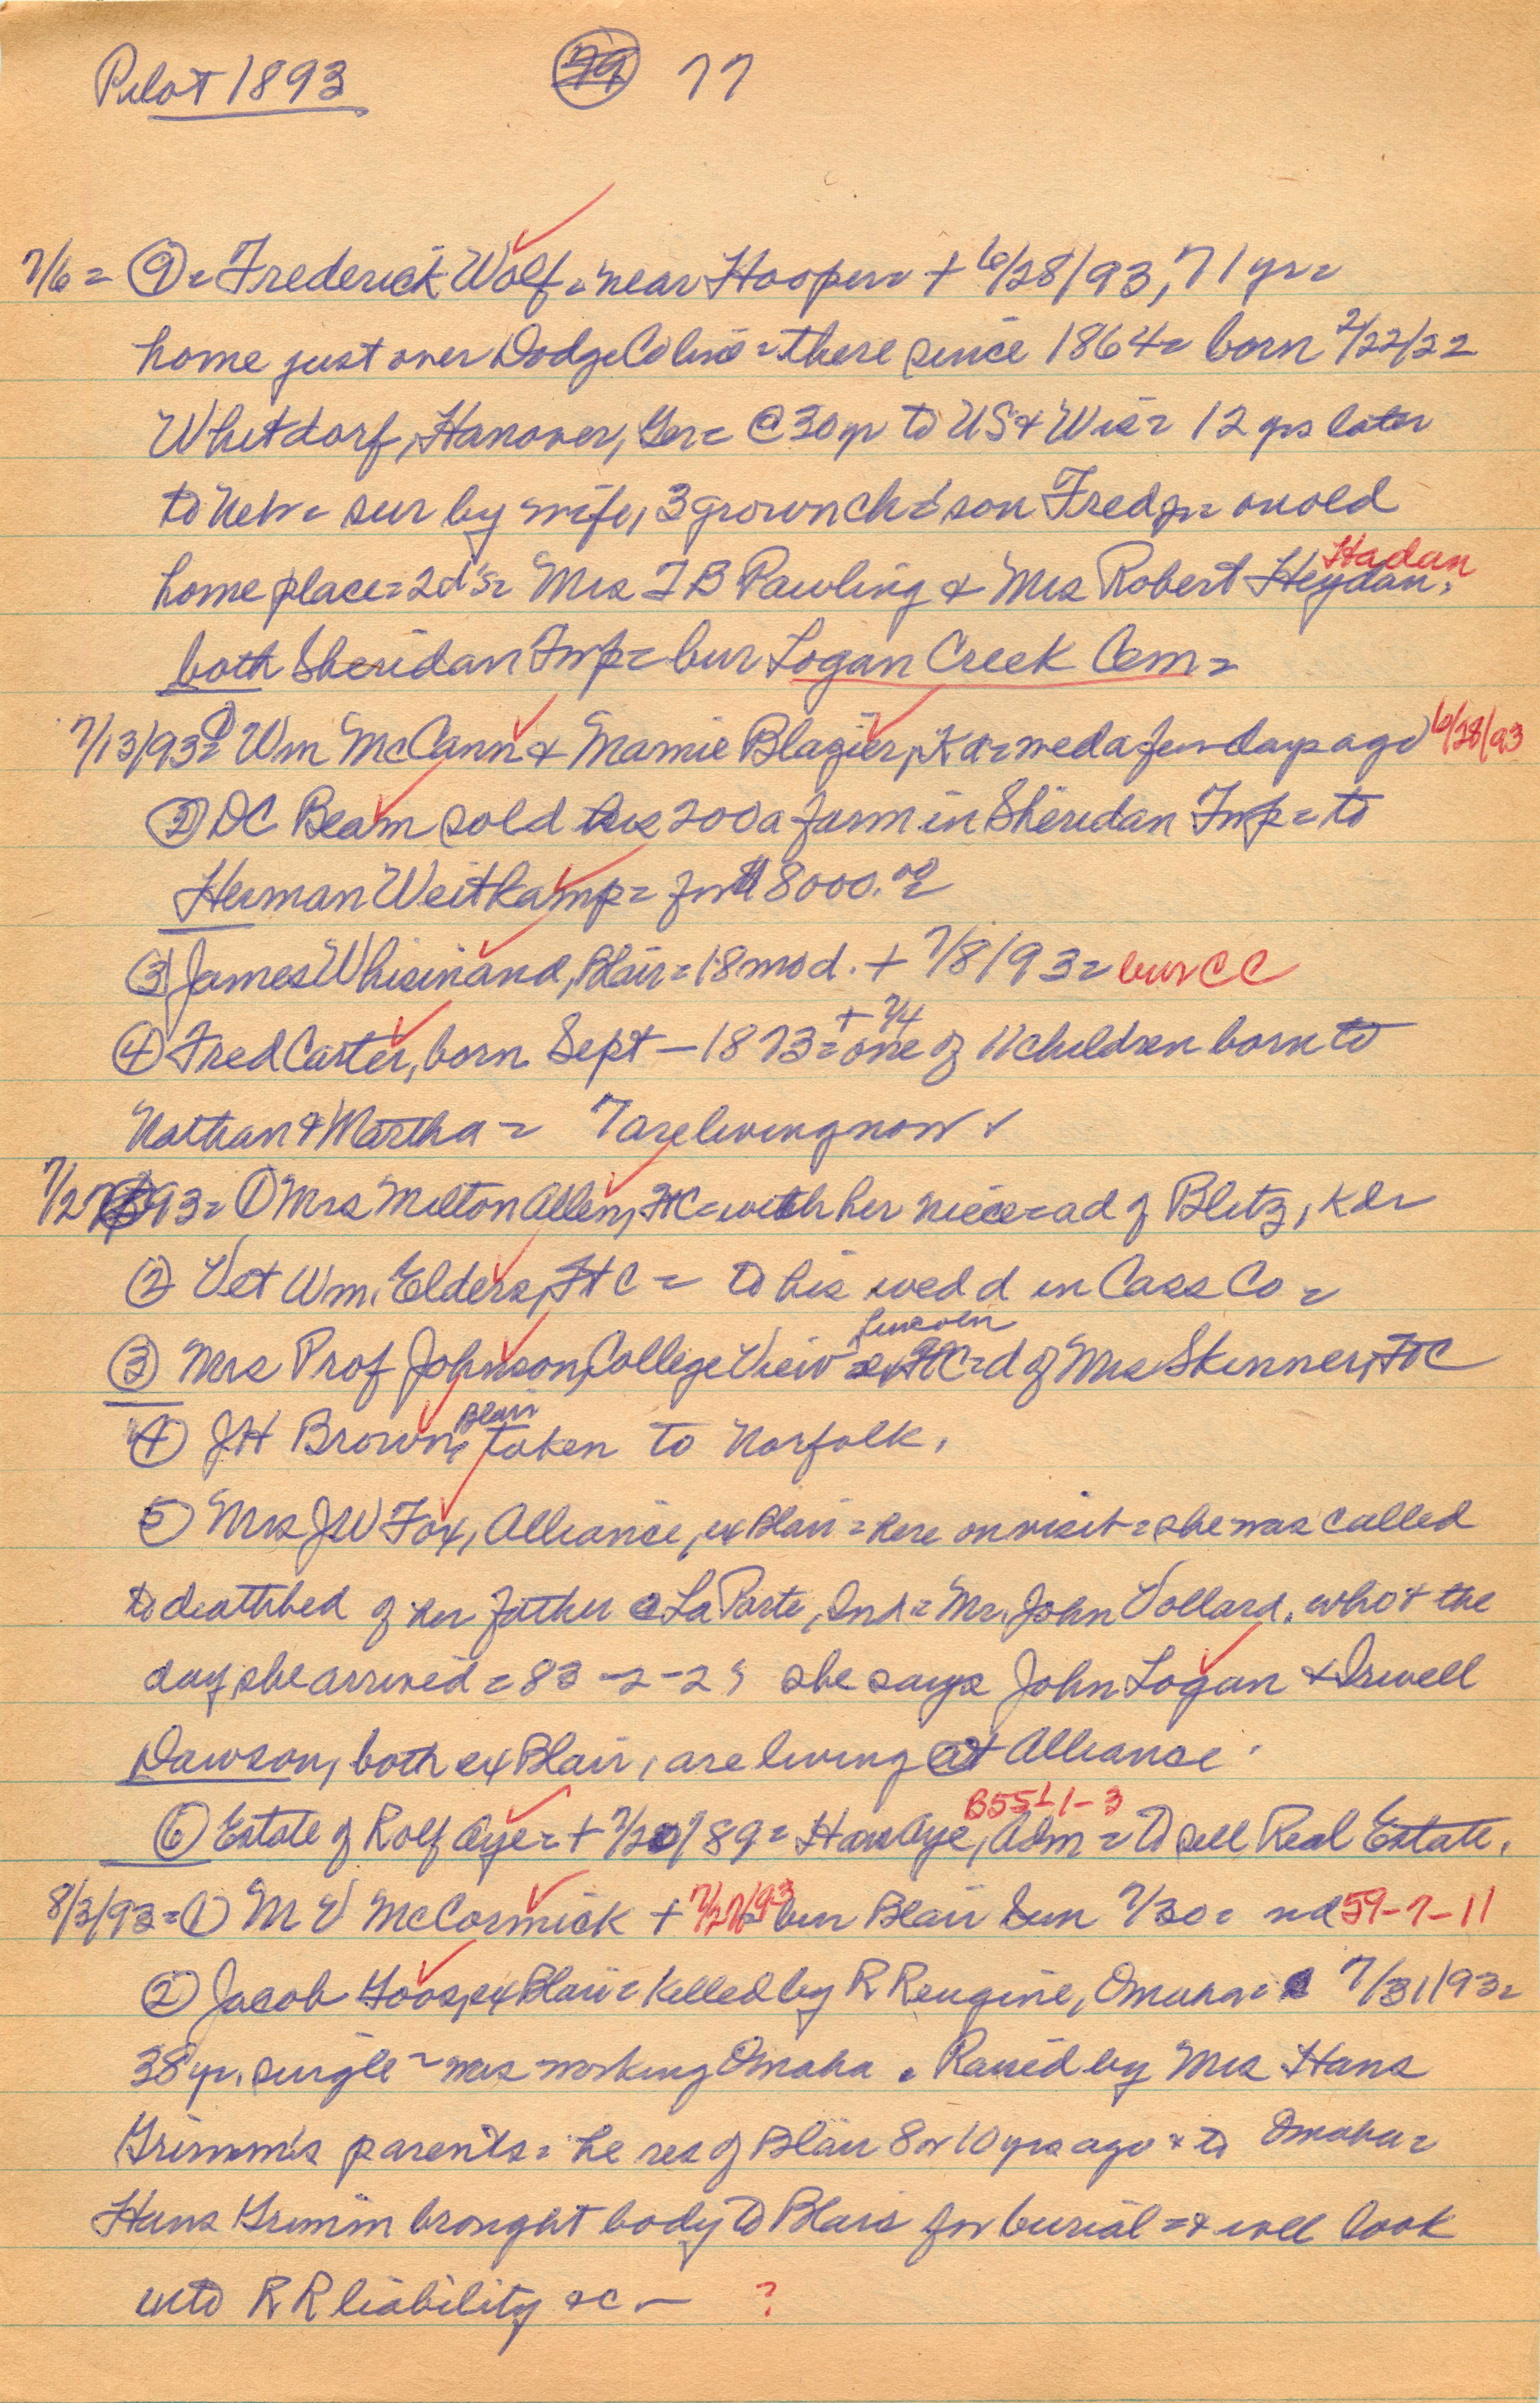 Pilot 1893 79 77
7/6 = 9 = Frederick Wolf = near Hooper = + 6/28/93, 71 yr =
home just over Dodge Co line = there since 1864 = born 2/22/22
Whitdorf, Hanover, Ger = @ 30 yr to US & Wis = 12 yrs later
to Neb = sur by wife, 3 grown ch = son Fred Jr = on old
Hadan
home place = 2 d's = Mrs T B Pawling & Mrs Robert Heydan,
both Sheridan Twp = bur Logan Creek Cem =
7/13/93 = 1 Wm McCann & Mamie Blazier, Ka = wed a few days ago 6/28/93
2 DC Beam sold his 200 a farm in Sheridan Twp = to
Herman Weitkamp = for $8000.00
3 James Whisinand, Blair = 18 mo d. + 7/8/93 = bur CC
+ 7/4
4 Fred Carter, born Sept – 1873 = one of 11 children born to
Nathan & Martha = 7 are living now
7/27/93 = 1 Mrs Milton Allen, FtC = with her niece = a d of Blitz, K d =
2 Vet Wm. Elders, FtC = to his wed d in Cass Co =
Lincoln
3 Mrs Prof Johnson, College View ex FtC = d of Mrs Skinner, FtC
Blair
4 JH Brown, taken to Norfolk,
5 Mrs JW Fox, Alliance, ex Blair = here on visit = she was called
to deathbed of her father @ La Porte, Ind = Mr. John Vollard, who + the
day she arrived = 83-2-25 she says John Logan & Irwell
Dawson, both ex Blair, are living at Alliance.
B55L1-3
6 Estate of Rolf Aye = + 7/20/89 = Hans Aye, Adm = to sell Real Estate,
8/3/93 = 1 M V McCormick + 7/27/93 bur Blair Sun 7/30 = nd 59-7-11
2 Jacob Goos, ex Blair = killed by RR engine, Omaha = 7/31/93 =
38 yr. single = was working Omaha. Raised by Mrs Hans
Grimm's parents = he res of Blair 8 or 10 yrs ago & to Omaha =
Hans Grimm brought body to Blair for burial = & will look
into RR liability &c – ?